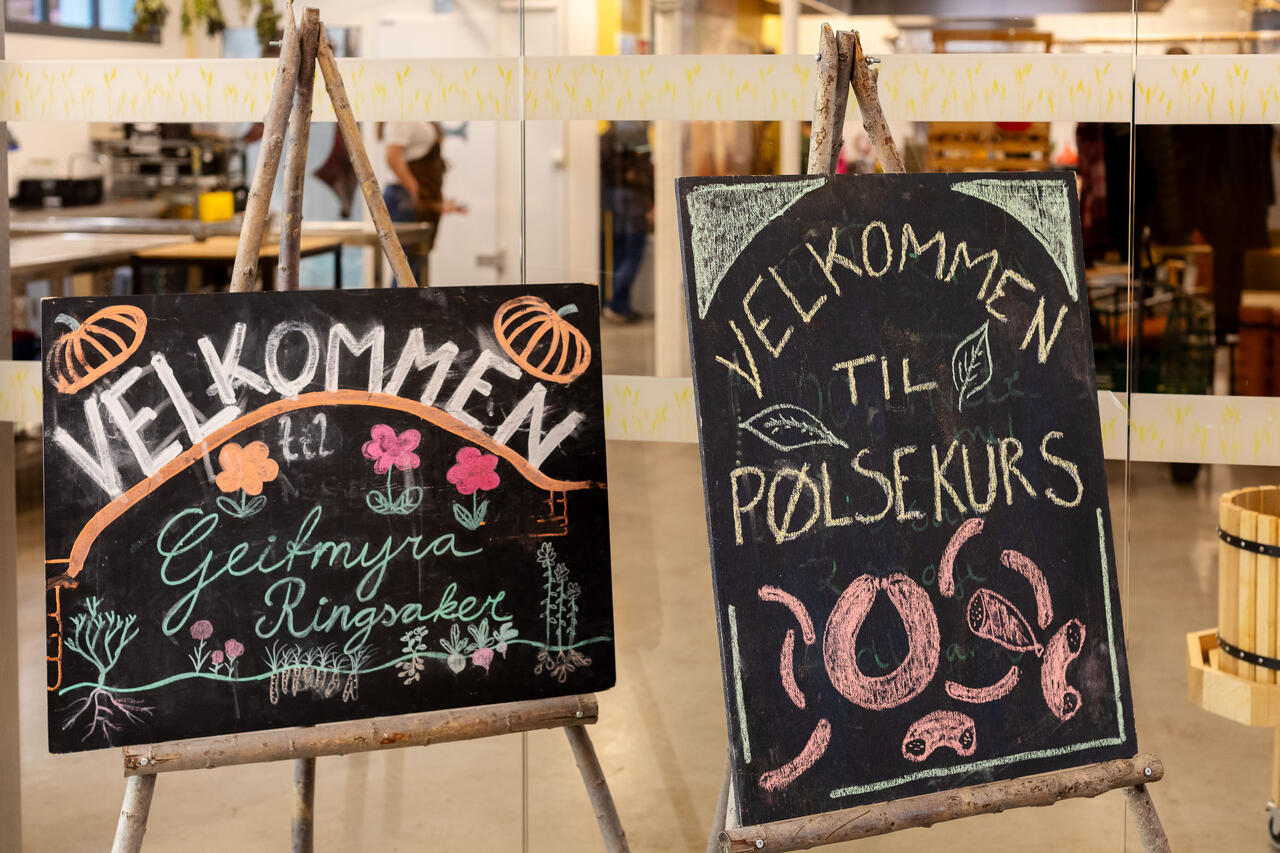 VELKOMMEN
til
Geitmyra
Ringsaker
VELKOMMEN
TIL
PØLSEKURS